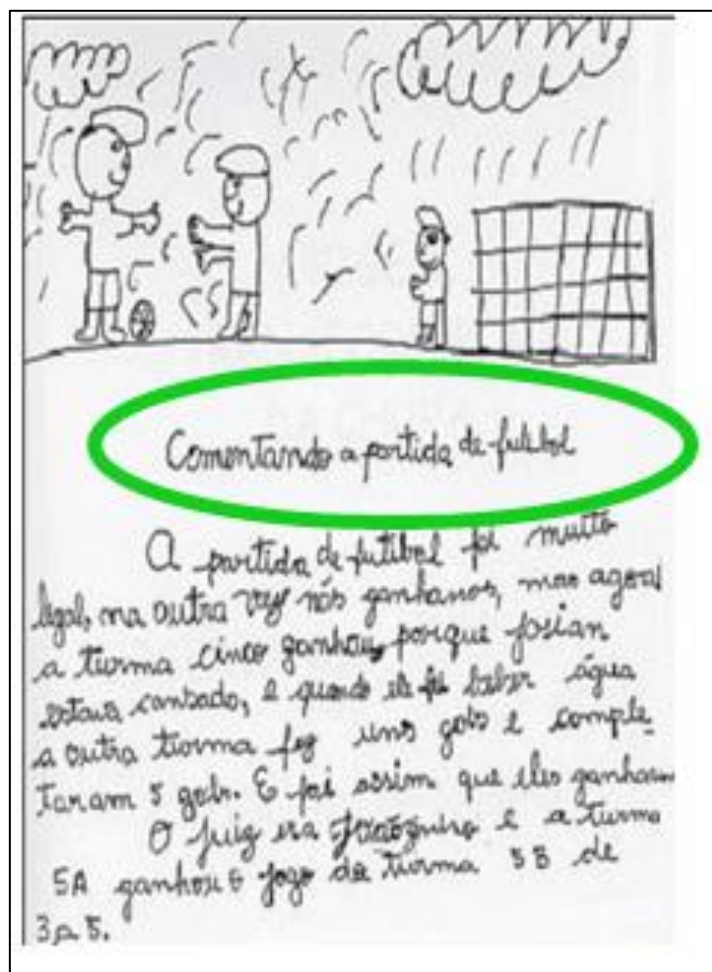 Comentando a partida de futebol
A partida de futibol foi muito
legal, na outra vez nós ganhanos, mas agora
a turma cinco ganhou, porque Josian
estava cansado, e quando ele foi beber água
a outra turma fez uns gols e comple-
taram 5 gols. E foi assim que eles ganharam
O juiz era Joãozinho e a turma
5A ganhou o jogo da turma 5B de
3 a 5.